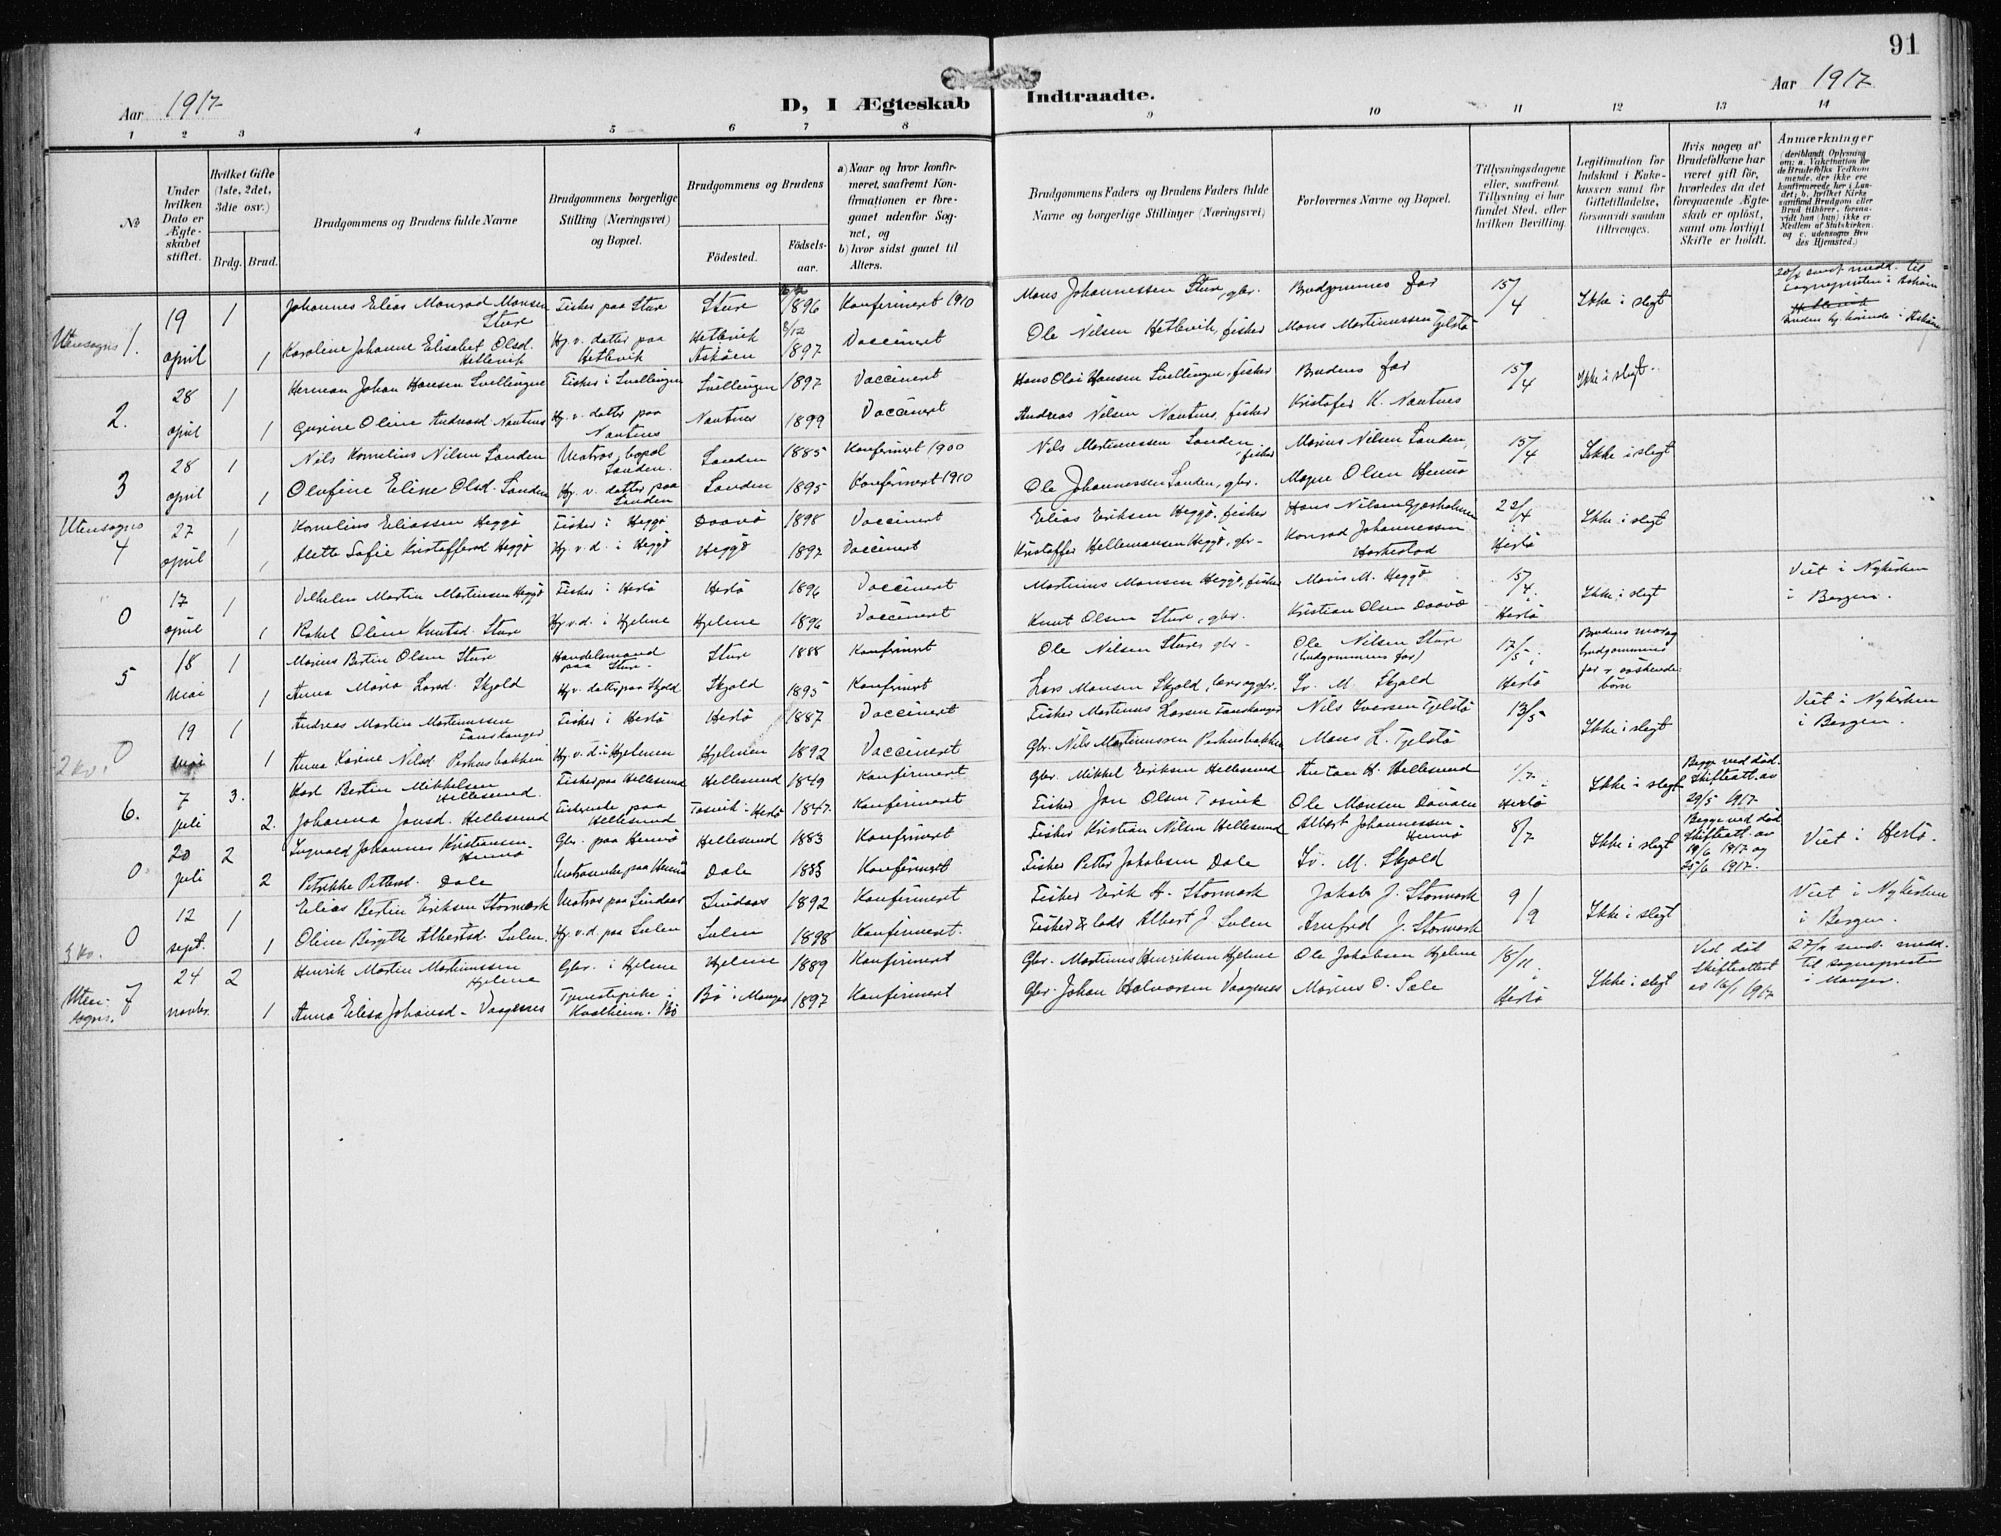 91
Aar 1917
D, I Ægteskab Indtraadte.
Aar 1917
1 2 3 4 5 6 7 8 9 10 11 12 13 14
№
Under hvilken Dato er Ægteskabet stiftet.
Hvilket Gifte (1ste, 2det, 3die osv.)
Brdg. Brud.
Brudgommens og Brudens fulde Navne
Brudgommens borgerlige Stilling (Næringsvei) og Bopæl.
Brudgommens og Brudens
Födested.
Födselsaar.
a) Naar og hvor konfirmeret, saafremt Konfirmationen er foregaaet udenfor Sognet, og
b) hvor sidst gaaet til Alters.
Brudgommens Faders og Brudens Faders fulde Navne og borgerlige Stillinger (Næringsvei)
Forlovernes Navne og Bopæl.
Tillysningsdagene eller, saafremt Tillysning ei har fundet Sted, efter hvilken Bevilling.
Legitimation for Indskud i Enkekassen samt for Giftetilladelse, forsaavidt saadan tiltrænges.
Hvis nogen af Brudefolkene har været gift før, hvorledes da det foregaaende Ægteskab er opløst, samt om lovligt Skifte er holdt.
Anmærkninger
Utensogns 1. 19 april 1 Johannes Elias Monrad Monsen Sture Fisker paa Sture Sture 1896 Konfirmeret 1910 Mons Johannessen Sture, gbr. Brudgommens far 15/4 Ikke i slegt
1 Karoline Johanne Elisabet Olsd. Hetlevik Hj. v. datter paa Hetlevik Hetlevik Askøen 8/12 1897 Vaccineret Ole Nilsen Hetlevik, fisker Mons Martinussen Tjelstø
2. 28 april 1 Herman Johan Hansen Svellingen Fisker i Svellingen Svellingen 1897 Vaccineret Hans Olai Hansen Svellingen, fisker Brudens far 15/4 Ikke i slegt.
1 Gurine Oline Andreasd. Nautnes Hj. v. datter paa Nautnes Nautnes 1899 Vaccineret Andreas Nilsen Nautnes, fisker Kristofer K. Nautnes
3 28 april 1 Nils Kornelius Nilsen Sanden Matros, bopæl Sanden. Sanden 1885 Konfirmert 1900 Nils Martinussen Sanden, fisker Marius Nilsen Sanden, 15/4 Ikke i slegt
1 Olufine Eline Olsd. Sanden Hj. v. datter paa Sanden Sanden 1895 Konfirmert 1910 Ole Johannessen Sanden, gbr. Mogne Olsen Hennø
Utensogns 4 27 april 1 Kornelius Eliassen Heggø Fisker i Heggø Daavø 1898 Vaccineret Elias Eriksen Heggø, fisker Hans Nilsen Gjerholmen 22/4 i Herlø Ikke i slegt
1 Alette Sofie Kristoffersd Heggø Hj. v. d. i Heggø Heggø 1897 Vaccineret Kristoffer Hellemansen Heggø, gbr. Konrad Johannessen
0 17 april 1 Vilhelm Martin Martinsen Heggø Fisker i Herlø Herlø 1896 Vaccineret Martinus Monsen Heggø, fisker Mons M. Heggø 15/4 i Herlø Ikke i slegt Viet i Nykirken i Bergen.
1 Rakel Oline Knutsd. Sture Hj. v. d. i Hjelme Hjelme 1896 Vaccineret Knut Olsen Sture, gbr. Kristian Olsen Daavø
5 18 mai 1 Marius Bertin Olsen Sture Handelsmand paa Sture Sture 1888 Konfirmert Ole Nilsen Sture gbr. Ole Nilsen Sture (brudgommens far) 17/5 i Herlø Brudens mor og brudgommens far
1 Anna Maria Larsd. Skjold Hj. v. datter paa Skjold Skjold 1895 Konfirmert Lars Monsen Skjold, lærer og gbr. Iv. M. Skjold
2 kv. 0 19 mai 1 Andreas Martin Martinussen Fanskanger Fisker i Herlø Herlø 1887 Vaccineret Fisker Martinus Larsen Fanskanger Nils Iversen Tjelstø 13/5 Ikke i slegt Viet i Nykirken i Bergen.
1 Anna Karine Nilsd Perhusbakken Hj. v. d. i Hjelmen Hjelmen 1892 Vaccineret Gbr. Nils Martinussen Perhusbakken Mons L. Tjelstø
6. 7 juli 3. Karl Bertin Mikkelsen Hellesund. Fisker paa Hellesund Hellesund 1849 Konfirmeret Gbr. Mikkel Eriksen Hellesund Anton H. Hellesund 1/7. i Herlø Ikke i slegt Begge ved død. Skifteatt. av 29/5 1917.
2. Johanna Jonsd. Hellesund Fiskerenke paa Hellesund Tosvik - Herlø 1847. Konfirmeret Fisker Jon Olsen Tosvik Ole Monsen
0 20 juli 2 Ingvald Johannes Kristiansen Hennø Gbr. paa Hennø Hellesund 1883 Konfirmeret Fisker Kristian Nilsen Hellesund Albert Johannessen Hennø 8/7 Ikke i slegt Begge ved død Skifteatt. av 19/6 1917 og 25/6 1917. Viet i Herlø.
2 Petrikke Pettersd. Dale Matrosenke paa Hennø Dale 1883 Konfirmeret Fisker Petter Jakobsen Dale Iv. M. Skjold
3 kv. 0 12 sept. 1 Elias Bertin Eriksen Stormark Matros paa Lindaas Lindaas 1892 Konfirmeret Fisker Erik H. Stormark Jakob J. Stormark 9/9 Ikke i slegt Viet i Nykirken i Bergen.
1 Oline Birgitte Albertsd. Sulen. Hj. v. d. paa Sulen Sulen 1898 Konfirmeret. Fisker & lods Albert J. Sulen Arnfred J. Stormark
Utensogns. 7 24 novbr. 2 Henrik Martin Martinussen Hjelme Gbr. i Hjelme Hjelme 1889 Konfirmert Gbr. Martinus Henriksen Hjelme Ole Jakobsen Hjelme 18/11 i Herlø Ikke i slegt Ved død Skifteattest av 16/1 1917. 27/11 sendt medd. til sognepresten i Manger.
1 Anna Elisa Johansd. Vaagenes Tjenestepike i Kvalheim. Bø Bø i Manger 1897 Konfirmert Gbr. Johan Halvorsen Vaagenes Marius O. Sæle